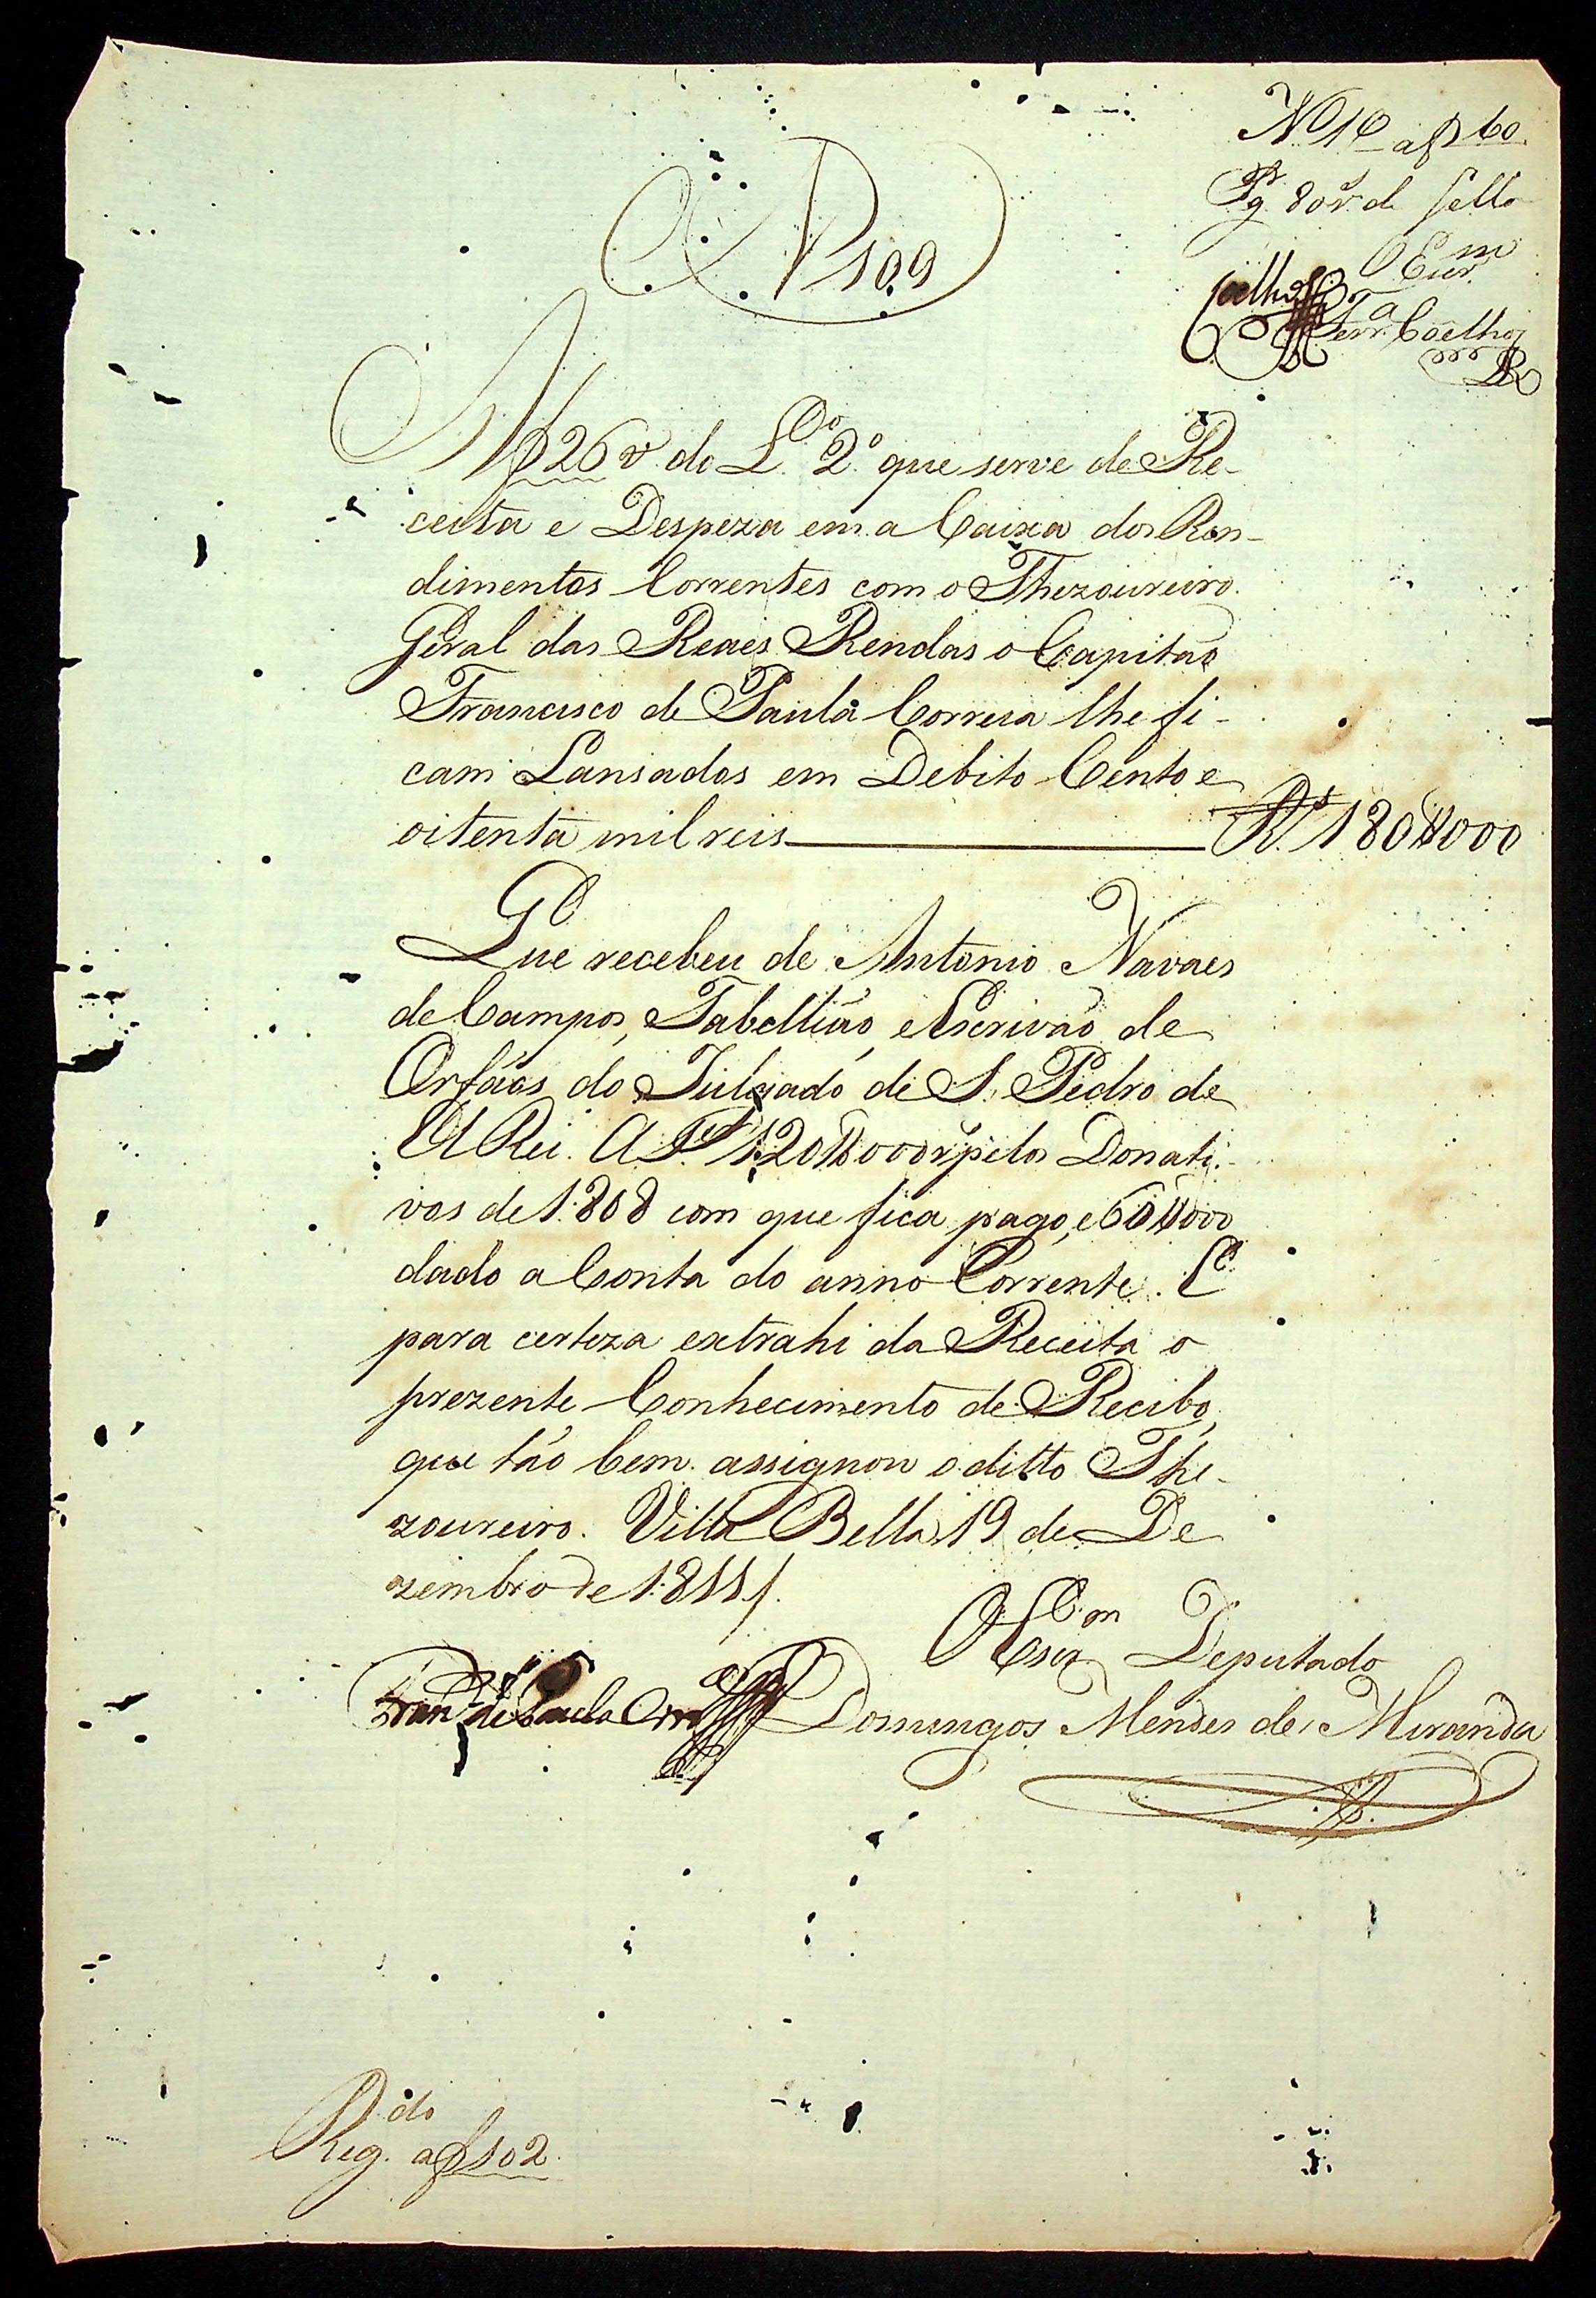 N 10 a f 60
Pg. 80 r.s de Sello
Coelho Ferr.a Coelho
N 109
A f 26 v. do L.o 2.o que serve de Re-
ceita e Despeza em a Caixa dos Ren-
dimentos Correntes com o Thezoureiro
Geral das Reaes Rendas o Capitão
Francisco de Paula Correia lhe fi-
cam Lansados em Debito Cento e
oitenta mil reis R.s 180$000
Que recebeu de Antonio Navaes
de Campos, Tabellião, e Escrivão de
Orfãos do Julgado de S. Pedro de
El Rei. A 120$000 r.s pelos Donati-
vos de 1808 com que fica pago, e 60$000
dado a Conta do anno Corrente. E
para certeza extrahi da Receita o
prezente Conhecimento de Recibo,
que tão bem assignou o ditto The-
zoureiro. Villa Bella 19 de De
zembro de 1811
O Escr.m Deputado
Fran.co de Paula Corr.a Domingos Mendes de Miranda
Reg.do a f 102